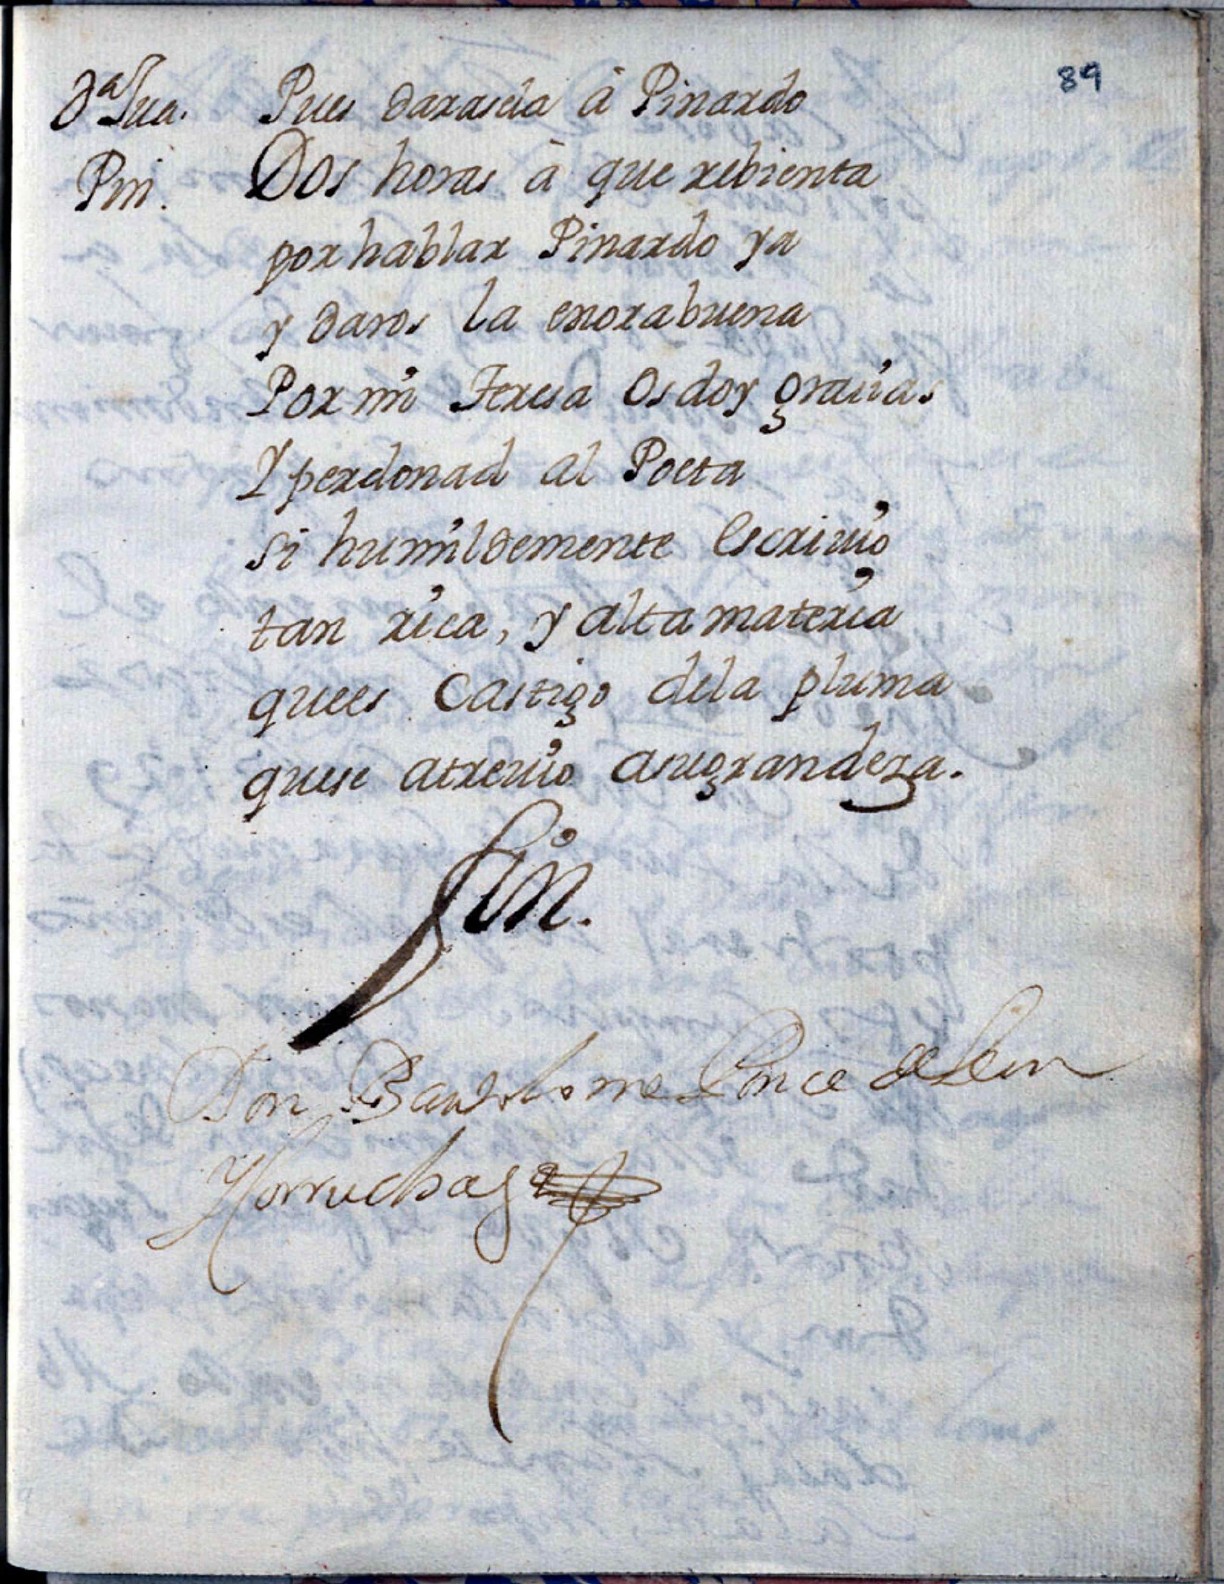 89
Dª Jua. Pues darasela â Pinardo
Pin. Dos horas â que rebienta
por hablar Pinardo ya
y daros la enorabuena
Por mi Teresa Os doy gracias
Y perdonad al Poeta
si humildemente Escriuio
tan rica, y alta materia
quees Castigo dela pluma
quese atreuio asugrandeza.
Fin.
Don Bartolome Ponce de Leon
Horruchaga